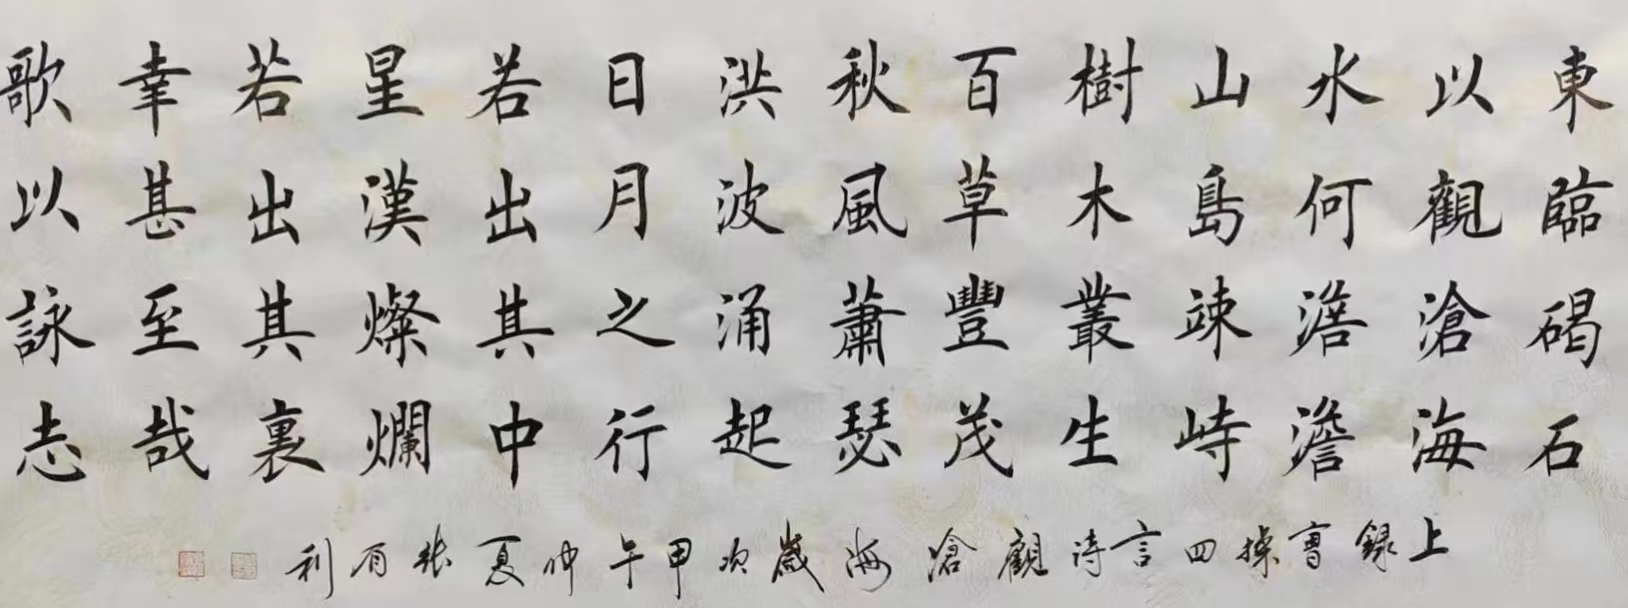 東臨碣石
以觀滄海
水何澹澹
山島竦峙
樹木叢生
百草豐茂
秋風蕭瑟
洪波涌起
日月之行
若出其中
星漢燦爛
若出其裏
幸甚至哉
歌以詠志
上録曹操四言诗觀滄海歲次甲午仲夏張有利